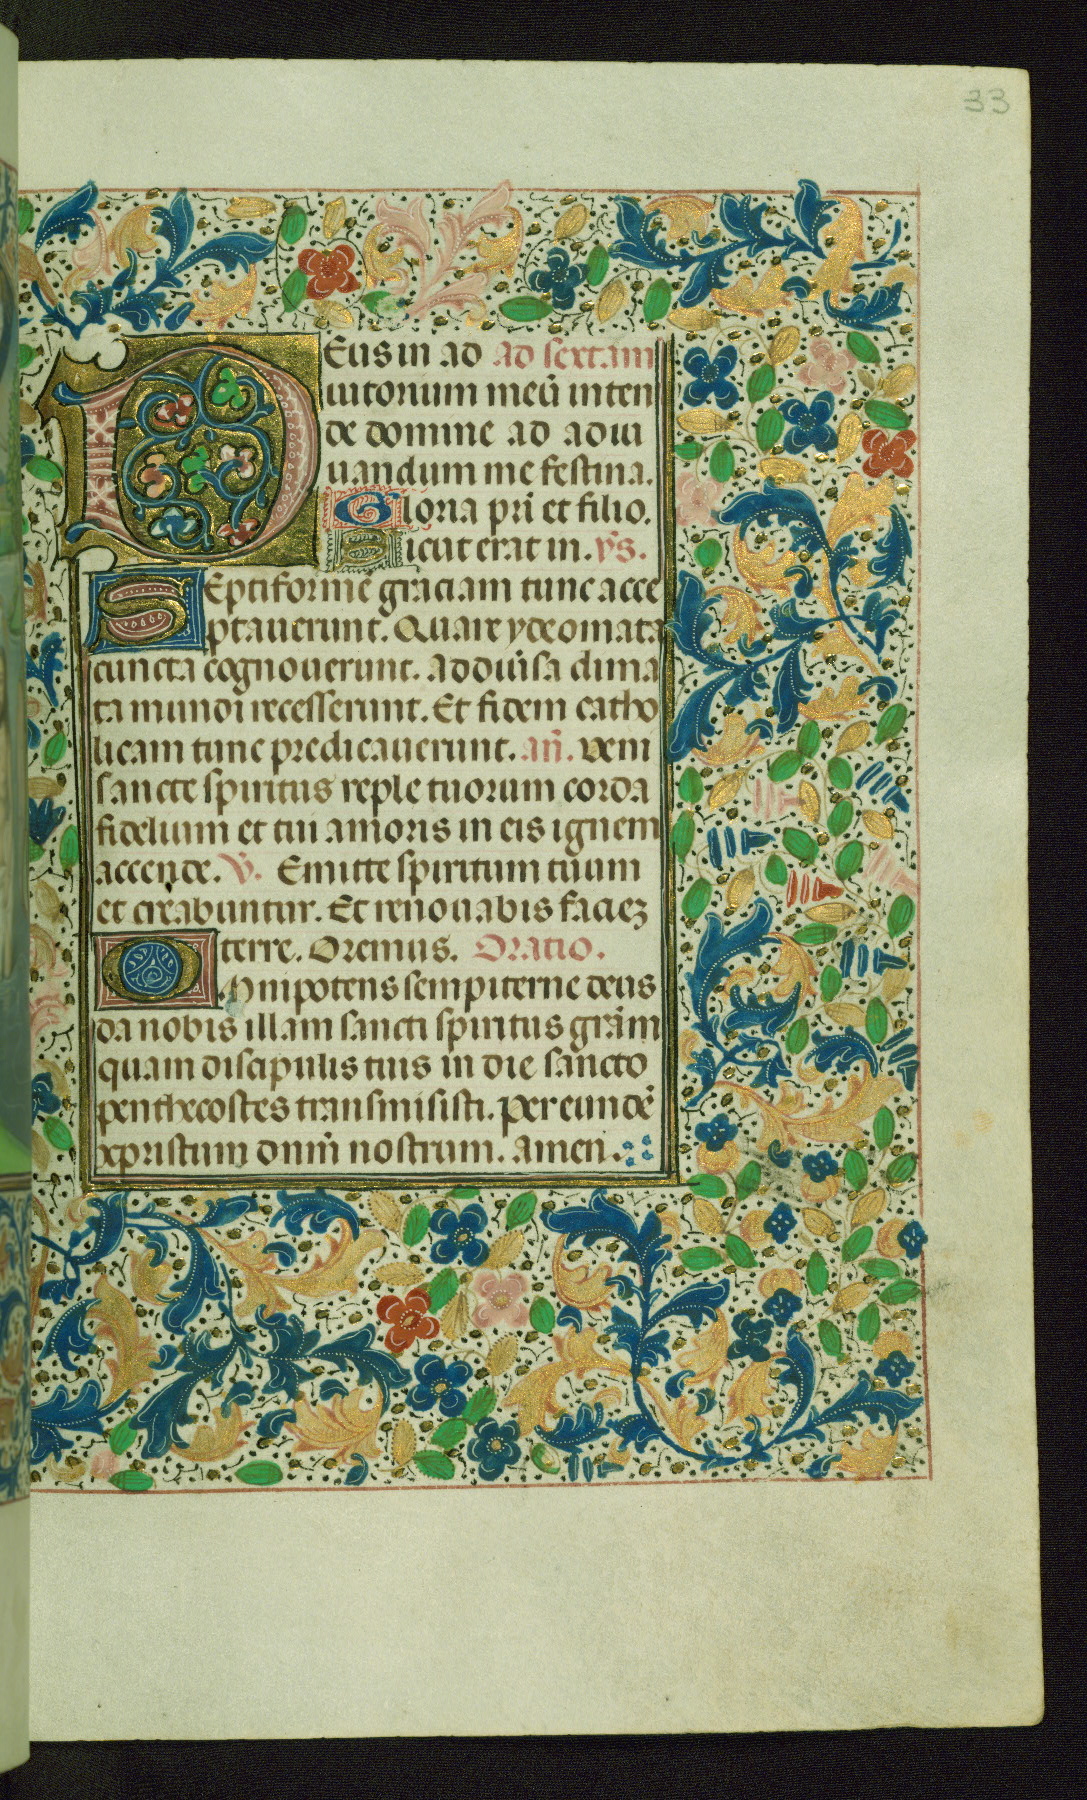 33
Deus in ad ad sextam
iutorium meū inten
de domine ad adiu
uandum me festina.
Gloria pri et filio.
Sicut erat in. ys.
Septiformē graciam tunc acce
ptauerunt. Quare ydeomata
cuncta cognouerunt. Ad diūsa clima
ta mundi recesserunt. Et fidem catho
licam tunc predicauerunt. an̄. Veni
sancte spiritus reple tuorum corda
fidelium et tui amoris in eis ignem
accende. V̄. Emitte spiritum tuum
et creabuntur. Et renouabis faciez
terre. Oremus. Oratio.
Omnipotens sempiterne deus
da nobis illam sancti spiritus grām
quam discipulis tuis in die sancto
penthecostes transmisisti. Per eundē
xpristum dnm̄ nostrum. Amen.